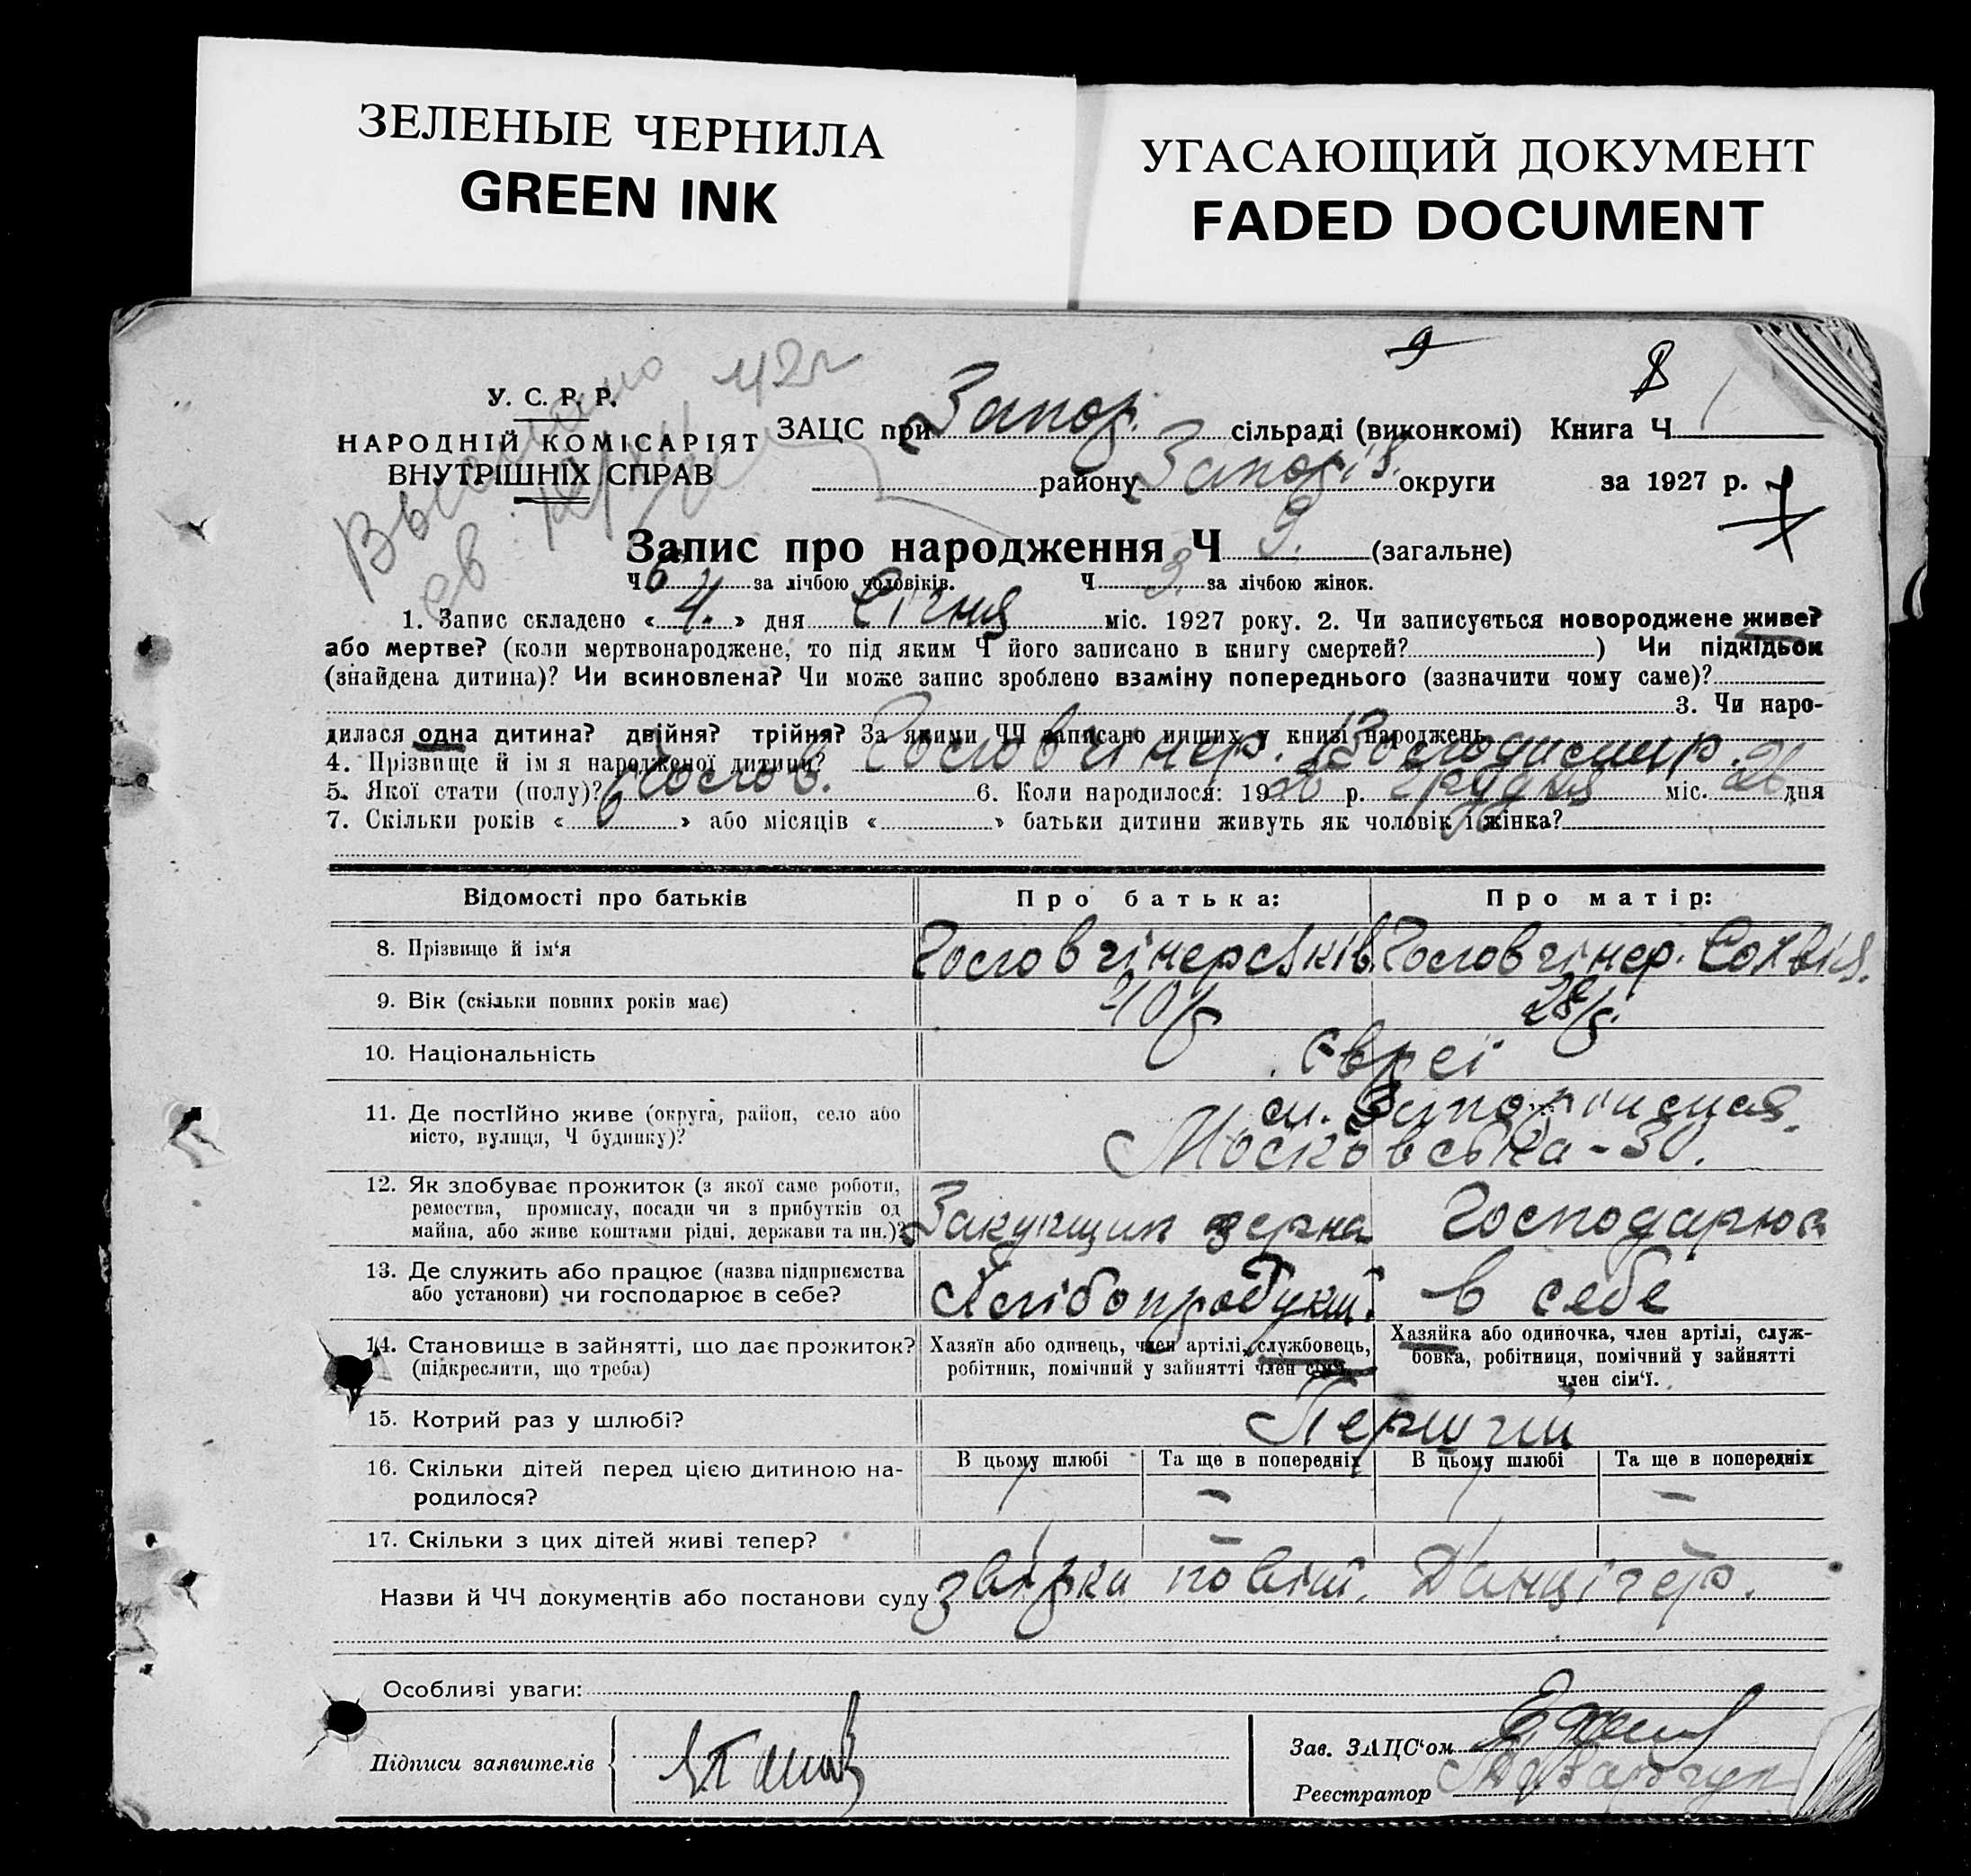 ЗЕЛЕНЫЕ ЧЕРНИЛА
GREEN INK
УГАСАЮЩИЙ ДОКУМЕНТ
FADED DOCUMENT
9
8
У. С. Р. Р.
НАРОДНІЙ КОМІСАРІЯТ
ВНУТРІШНІХ СПРАВ
42г
ЗАЦС при Запор. сільраді (виконкомі) Книга Ч 1
району Запоріз. округи за 1927 р.
Запис про народження Ч 9. (загальне)
Ч 6 за лічбою чоловіків. Ч 3. за лічбою жінок.
1. Запис складено «4.» дня Січня міс. 1927 року. 2. Чи записується новороджене живе?
або мертве? (коли мертвонароджене, то під яким Ч його записано в книгу смертей?) Чи підкідьок
(знайдена дитина)? Чи всиновлена? Чи може запис зроблено взаміну попереднього (зазначити чому саме)?
3. Чи наро-
дилася одна дитина? двійня? трійня? За якими ЧЧ записано инших у книзі народжень
4. Прізвище й імя народженої дитини? Головчінер. Володимир.
5. Якої стати (полу)? Чолов. 6. Коли народилося: 1926 р. Грудня міс. 26 дня
7. Скільки років «6» або місяців «» батьки дитини живуть як чоловік і жінка?
Відомості про батьків
Про батька:
Про матір:
8. Прізвище й ім‘я Головчінер Яків. Головчінер. Софвія.
9. Вік (скільки повних років має) 40/5 28/5.
10. Національність Євреї
11. Де постійно живе (округа, район, село або
місто, вулиця, Ч будинку)?
м. Запоріжжя.
Московська - 30.
12. Як здобуває прожиток (з якої саме роботи,
ремества, промислу, посади чи з прибутків од
майна, або живе коштами рідні, держави та ин.)?
Закупщик зерна Господарює
13. Де служить або працює (назва підприємства
або установи) чи господарює в себе?
Хлібопродукт. в себе
14. Становище в зайнятті, що дає прожиток?
(підкреслити, що треба)
Хазяїн або одинець, член артілі, службовець,
робітник, помічний у зайнятті член сім‘ї.
Хазяйка або одиночка, член артілі, служ-
бовка, робітниця, помічний у зайнятті
член сім‘ї.
15. Котрий раз у шлюбі? Перший
16. Скільки дітей перед цією дитиною на-
родилося?
В цьому шлюбі Та ще в попередніх В цьому шлюбі Та ще в попередніх
1 – 1 –
17. Скільки з цих дітей живі тепер? 1 – 1 –
Назви й ЧЧ документів або постанови суду звірка повит. Данцігер.
Особливі уваги:
Підписи заявителів
Зав. ЗАЦС‘ом
Реєстратор